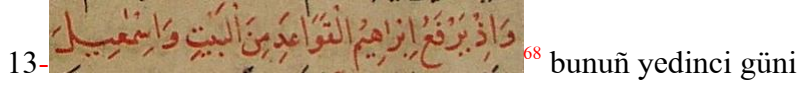 13-وَاِذْ يَرْفَعُ اِبْرَاهِيمُ الْقَوَاعِدَ مِنَ الْبَيْتِ وَاِسْمٰعِيلَ68 bunuñ yedinci güni